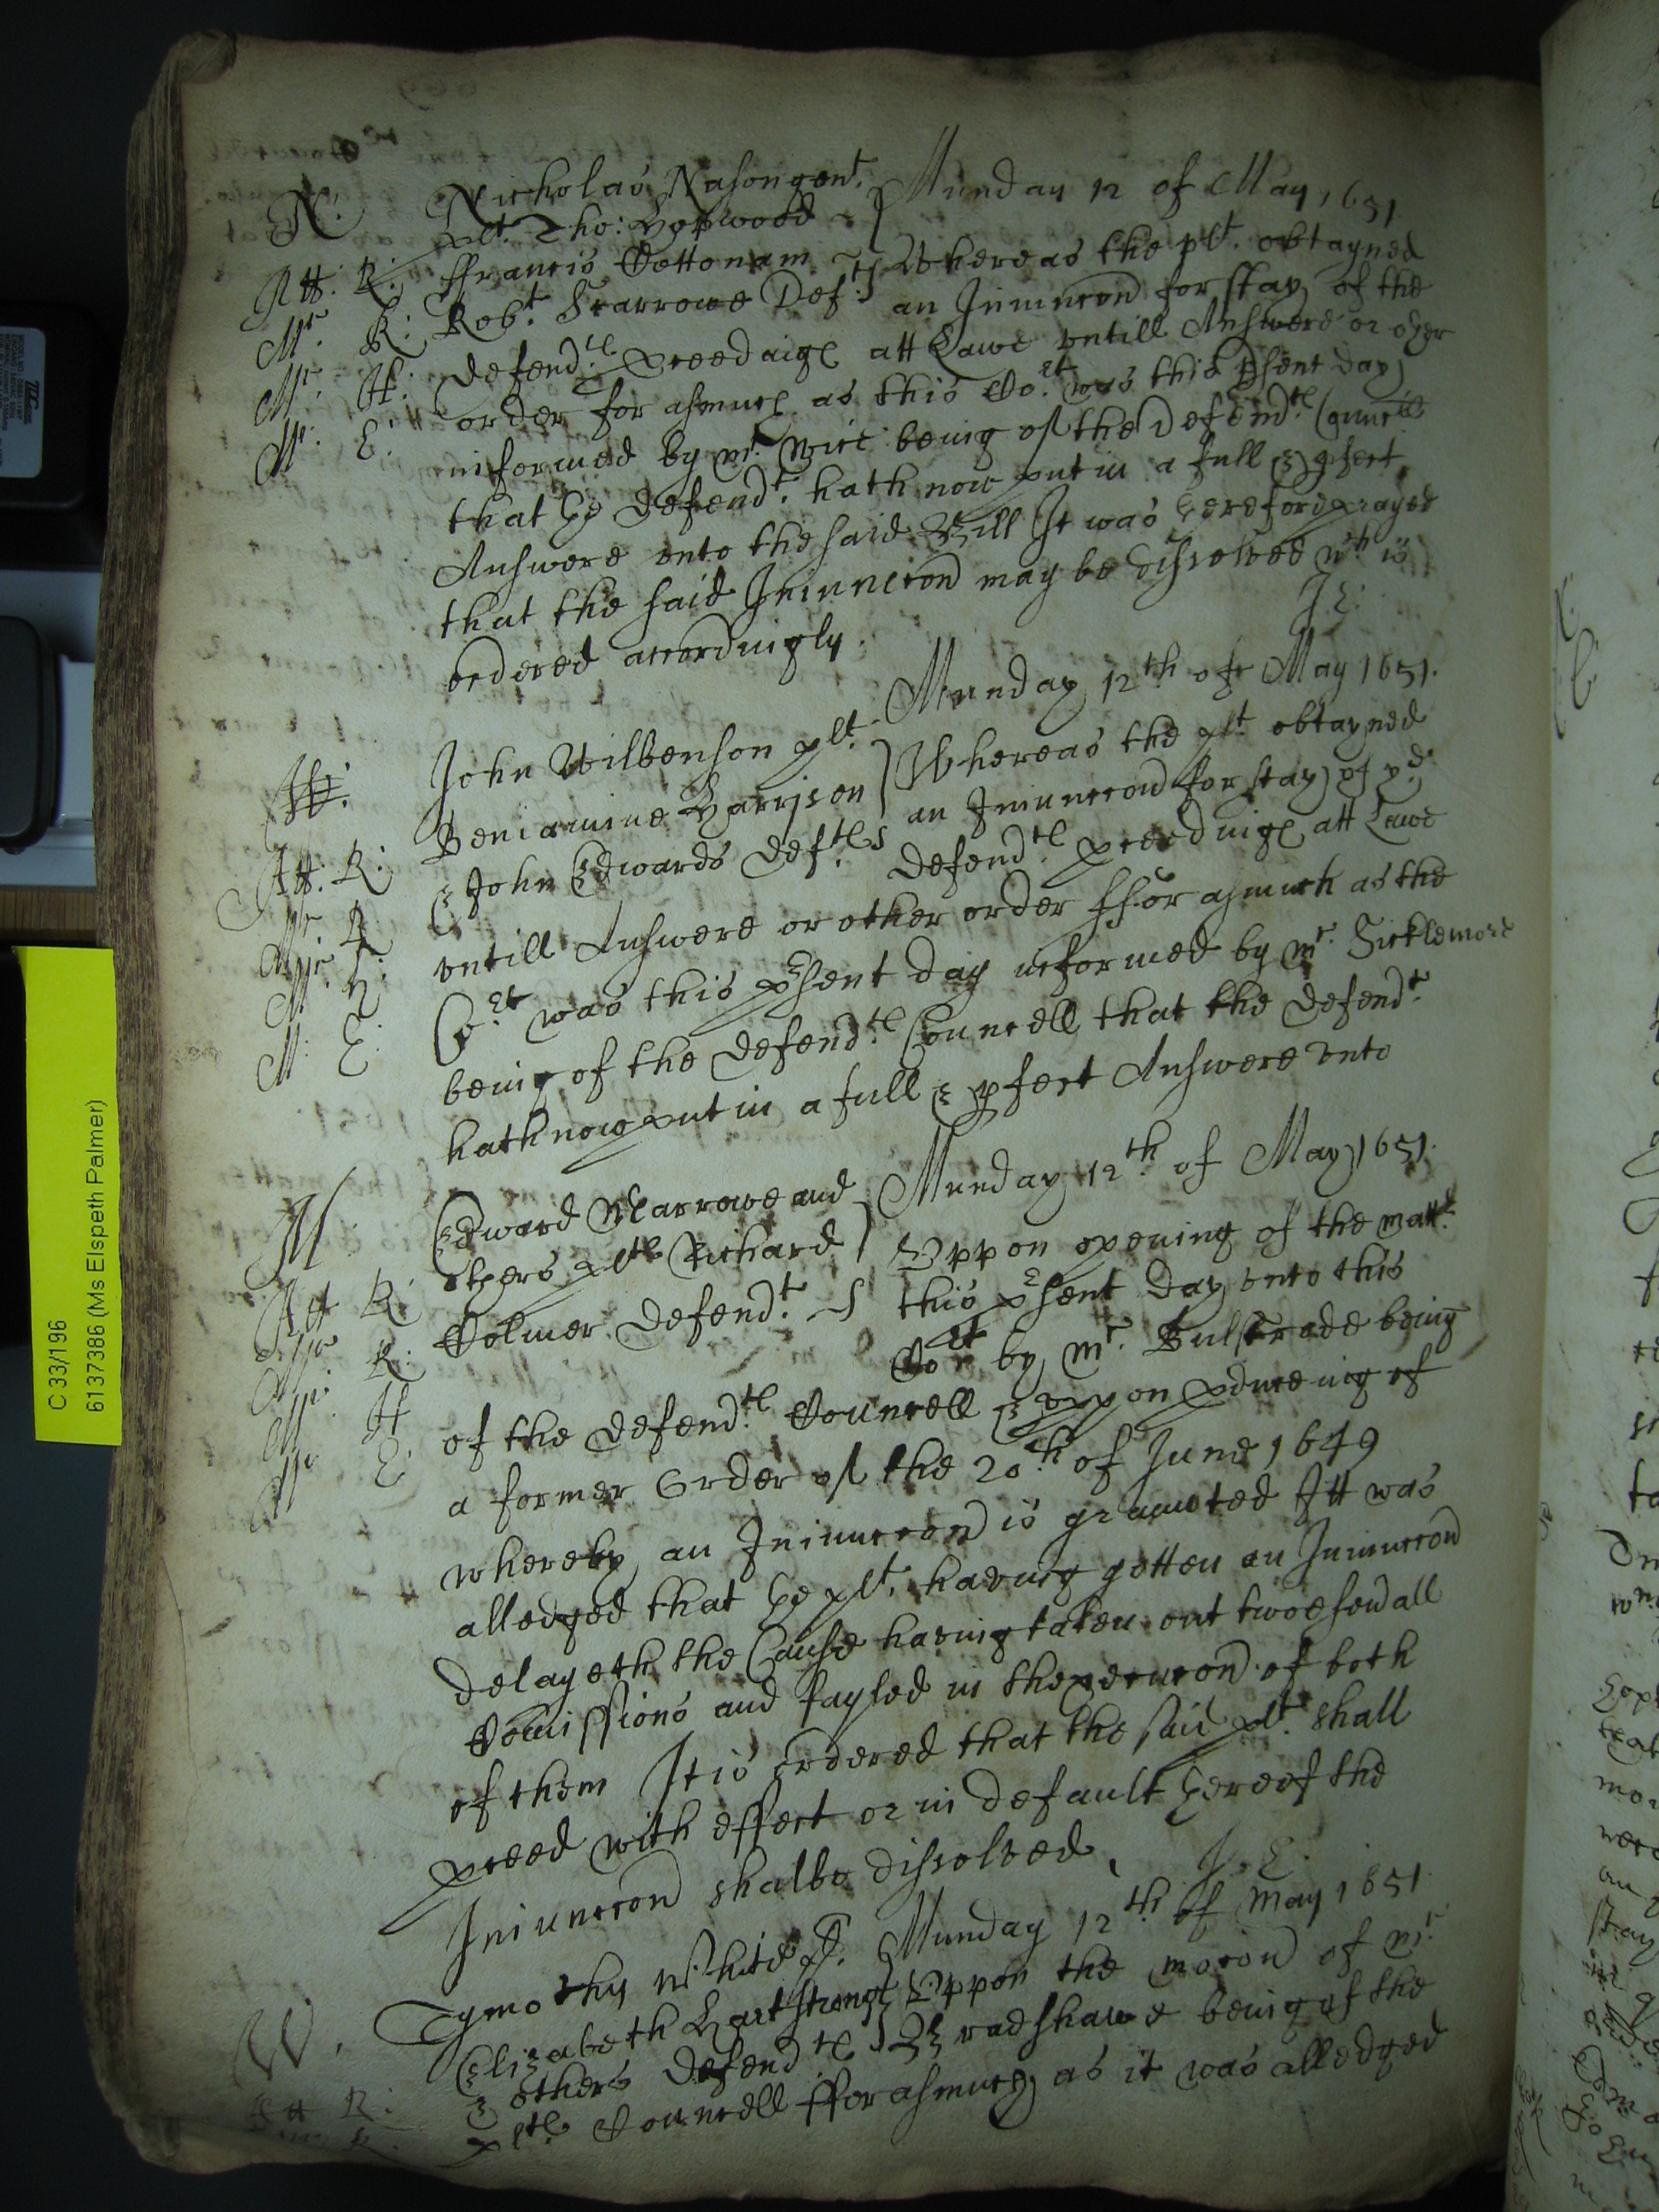 N: Nicholas Nason gent. Munday 12 of May 1651
plt. Tho: Hopwood
Att: R: ffrancis Cottonam Whereas the plt. obtayned
Mr. R: Robt. Scarrowe Def.ts an Iniunccon for stay of the
Mr. H: defend.tes proceedings att Lawe vntill Answere or other
Mr. E: order for asmuch as this Co.rt was this p̱sent day
informed by mr. being of the Defend.tes Councell
that the defend.t hath now put in a full & p̱fect
Answere vnto the said Bill It was therefore prayed
that the said Iniunccon may be dissolved wch is
ordered accordingly. J.E:
Munday 12th of May 1651.
H: John Wilbenson plt. Whereas the plt obtayned
Beniamine Harrison an Iniunccon for stay of ye
Att: R: & John Edwards Def.tes defend.tes proceedings att Lawe
Mr R vntill Answere or other order ffor asmuch as the
Mr H: Co.rt was this p̱sent day informed by mr. Sicklemore
M: E: being of the defend.tes Councell that the defend.t
hath now put in a full & p̱fect Answere vnto
M Edward Marrowe and Munday 12th of May 1651.
others plts Richard Vppon opening of the matt.r
Att R: Colmer defend.t this p̱sent day vnto this
Mr R: Cort by mr. Bulstrade being
Mr. H of the defend.tes Councell & vppon p̱duceing of
Mr E: a former Order of the 20th of June 1649
whereby an Iniunccon is graunted Itt was
alledged that the plt. having gotten an Iniunccon
delayeth the Cause having taken out twoe seu̱all
Com̄issions and fayled in thexecucon of both
of them It is ordered that the said plt. shall
p̱ceed with effect or in default thereof the
Iniunccon shalbe dissolved. J.E.
W. Tymothy White pt. Munday 12th of May 1651
Elizabeth Hartstrong Vppon the mocon of mr.
Att R: & others defend.tes Bradshawe being of the
Mr R. pltes Councell fforasmuch as it was alledged
C 33/196
6137386 (Ms Elspeth Palmer)